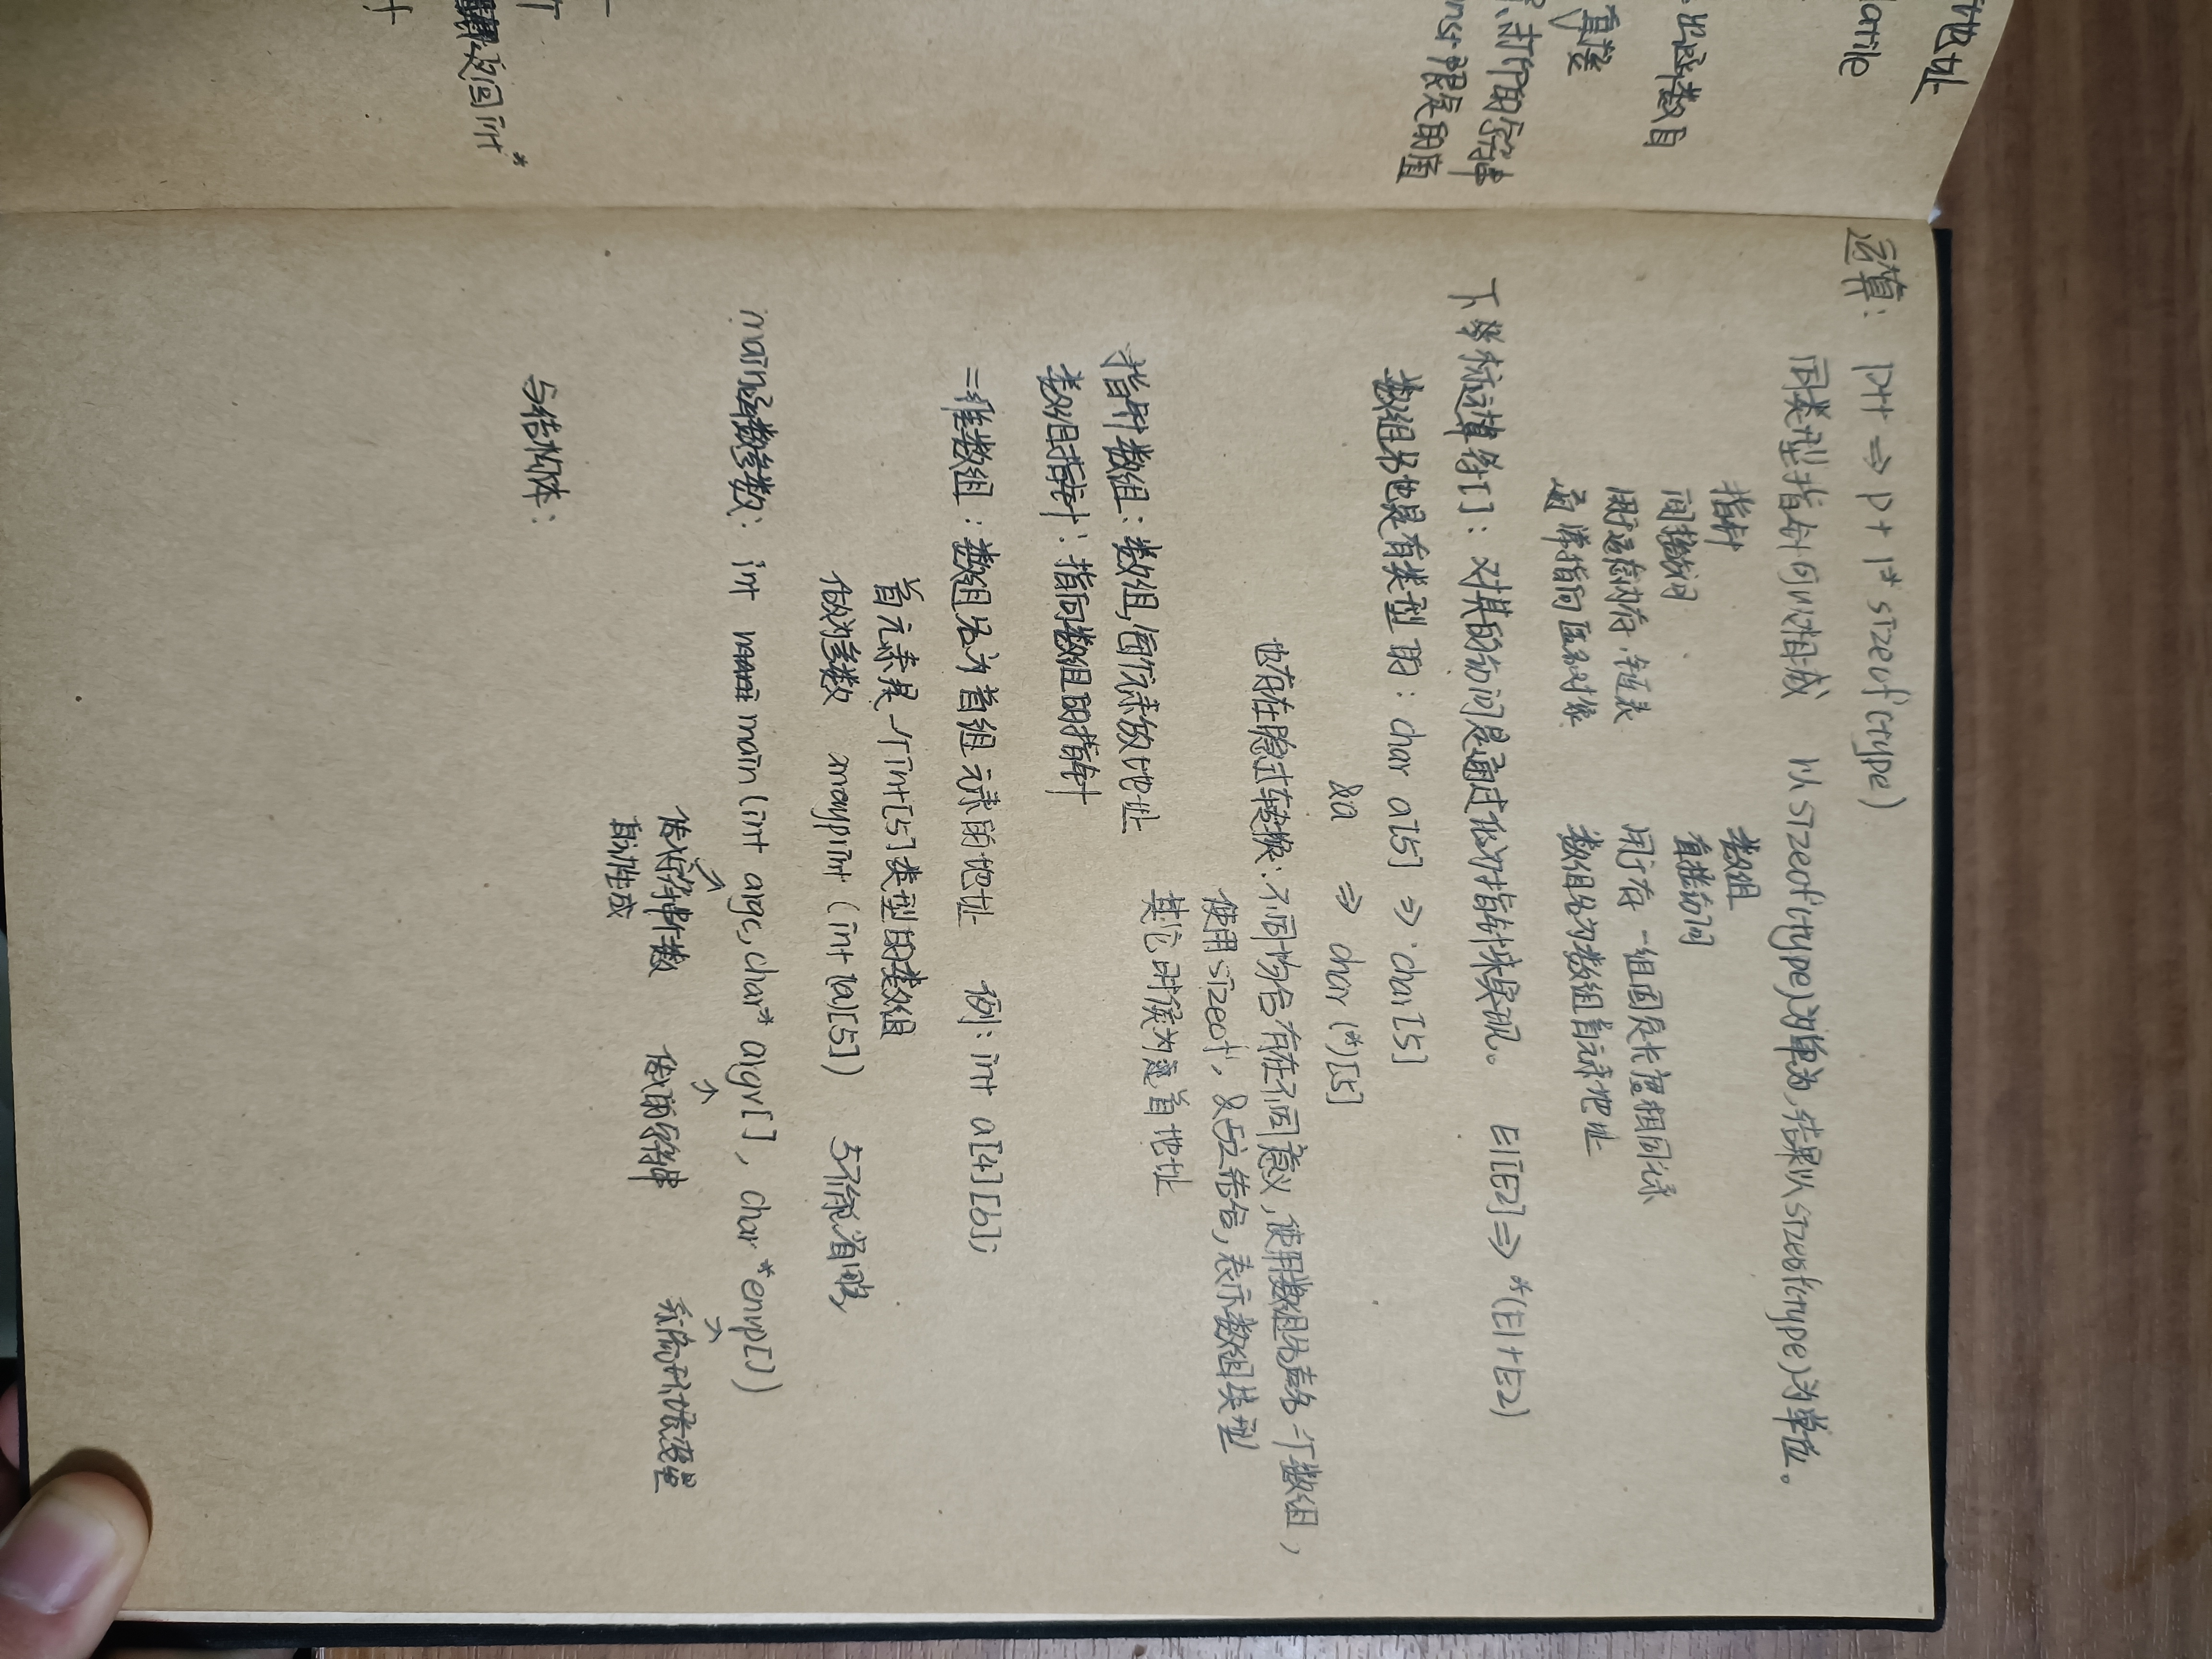 地址
latile
出字符数目
直接
打印的字符串
const限定的值
返回int*
运算：p++ ⇒ p + 1* sizeof(type)
同类型指针可以相减 以sizeof(type)为单位，结果以sizeof(type)为单位。
指针 数组
间接访问 直接访问
用于动态内存，链表 用于存一组固定长度相同元素
通常指向匿名对象 数组名为数组首元素地址
下标运算符[]：对其的访问是通过化为指针来实现。 E1[E2] ⇒ *(E1+E2)
数组名也是有类型的：char a[5] ⇒ char[5]
&a ⇒ char (*)[5]
也存在隐式转换：不同场合存在不同意义，使用数组名声名一个数组，
使用sizeof，&与之结合，表示数组类型
其它时候为首地址
指针数组：数组，每个元素放地址
数组指针：指向数组的指针
二维数组：数组名为首组元素的地址 例：int a[4][6];
首元素是一个int[5]类型的类数组
做为参数 (int (a)[5]) 5不能省略，
main函数参数：int main(int argc, char* argv[], char *envp[])
传字符串个数 传的字符串 系统环境变量
自动生成
与结构体：